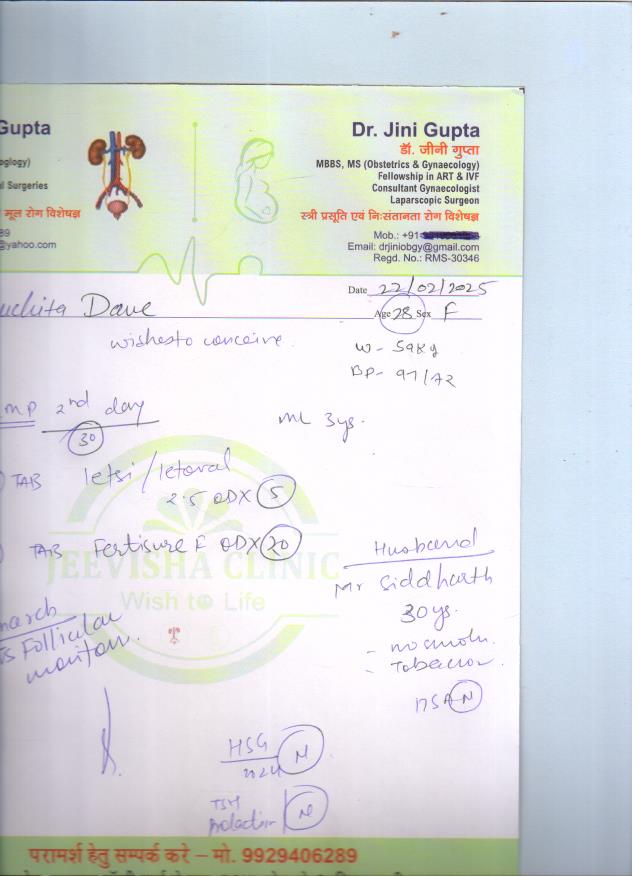 Gupta
Dr. Jini Gupta
डॉ. जीनी गुप्ता
MBBS, MS (Obstetrics & Gynaecology)
Fellowship in ART & IVF
Consultant Gynaecologist
Laparscopic Surgeon
स्त्री प्रसूति एवं निःसंतानता रोग विशेषज्ञ
Mob.: +91-
Email: drjiniobgy@gmail.com
Regd. No.: RMS-30346
ology)
l Surgeries
मूत्र रोग विशेषज्ञ
89
@yahoo.com
Date 22/02/2025
uchita Dave
Age 28 Sex F
wishes to conceive.
W - 59kg
BP - 97/72
MP 2nd day
30
ML 3ys.
TAB letsi/letoval
2.5 OD X 5
TAB Fertisure F OD X 20
JEEVISHA CLINIC
Wish to Life
Husband
Mr Siddharth
30 ys.
- no smok
- Tobacco
DSA N
march
Follicular
monitor
HSG N
2024
TSH
Prolactin N
परामर्श हेतु सम्पर्क करे – मो. 9929406289